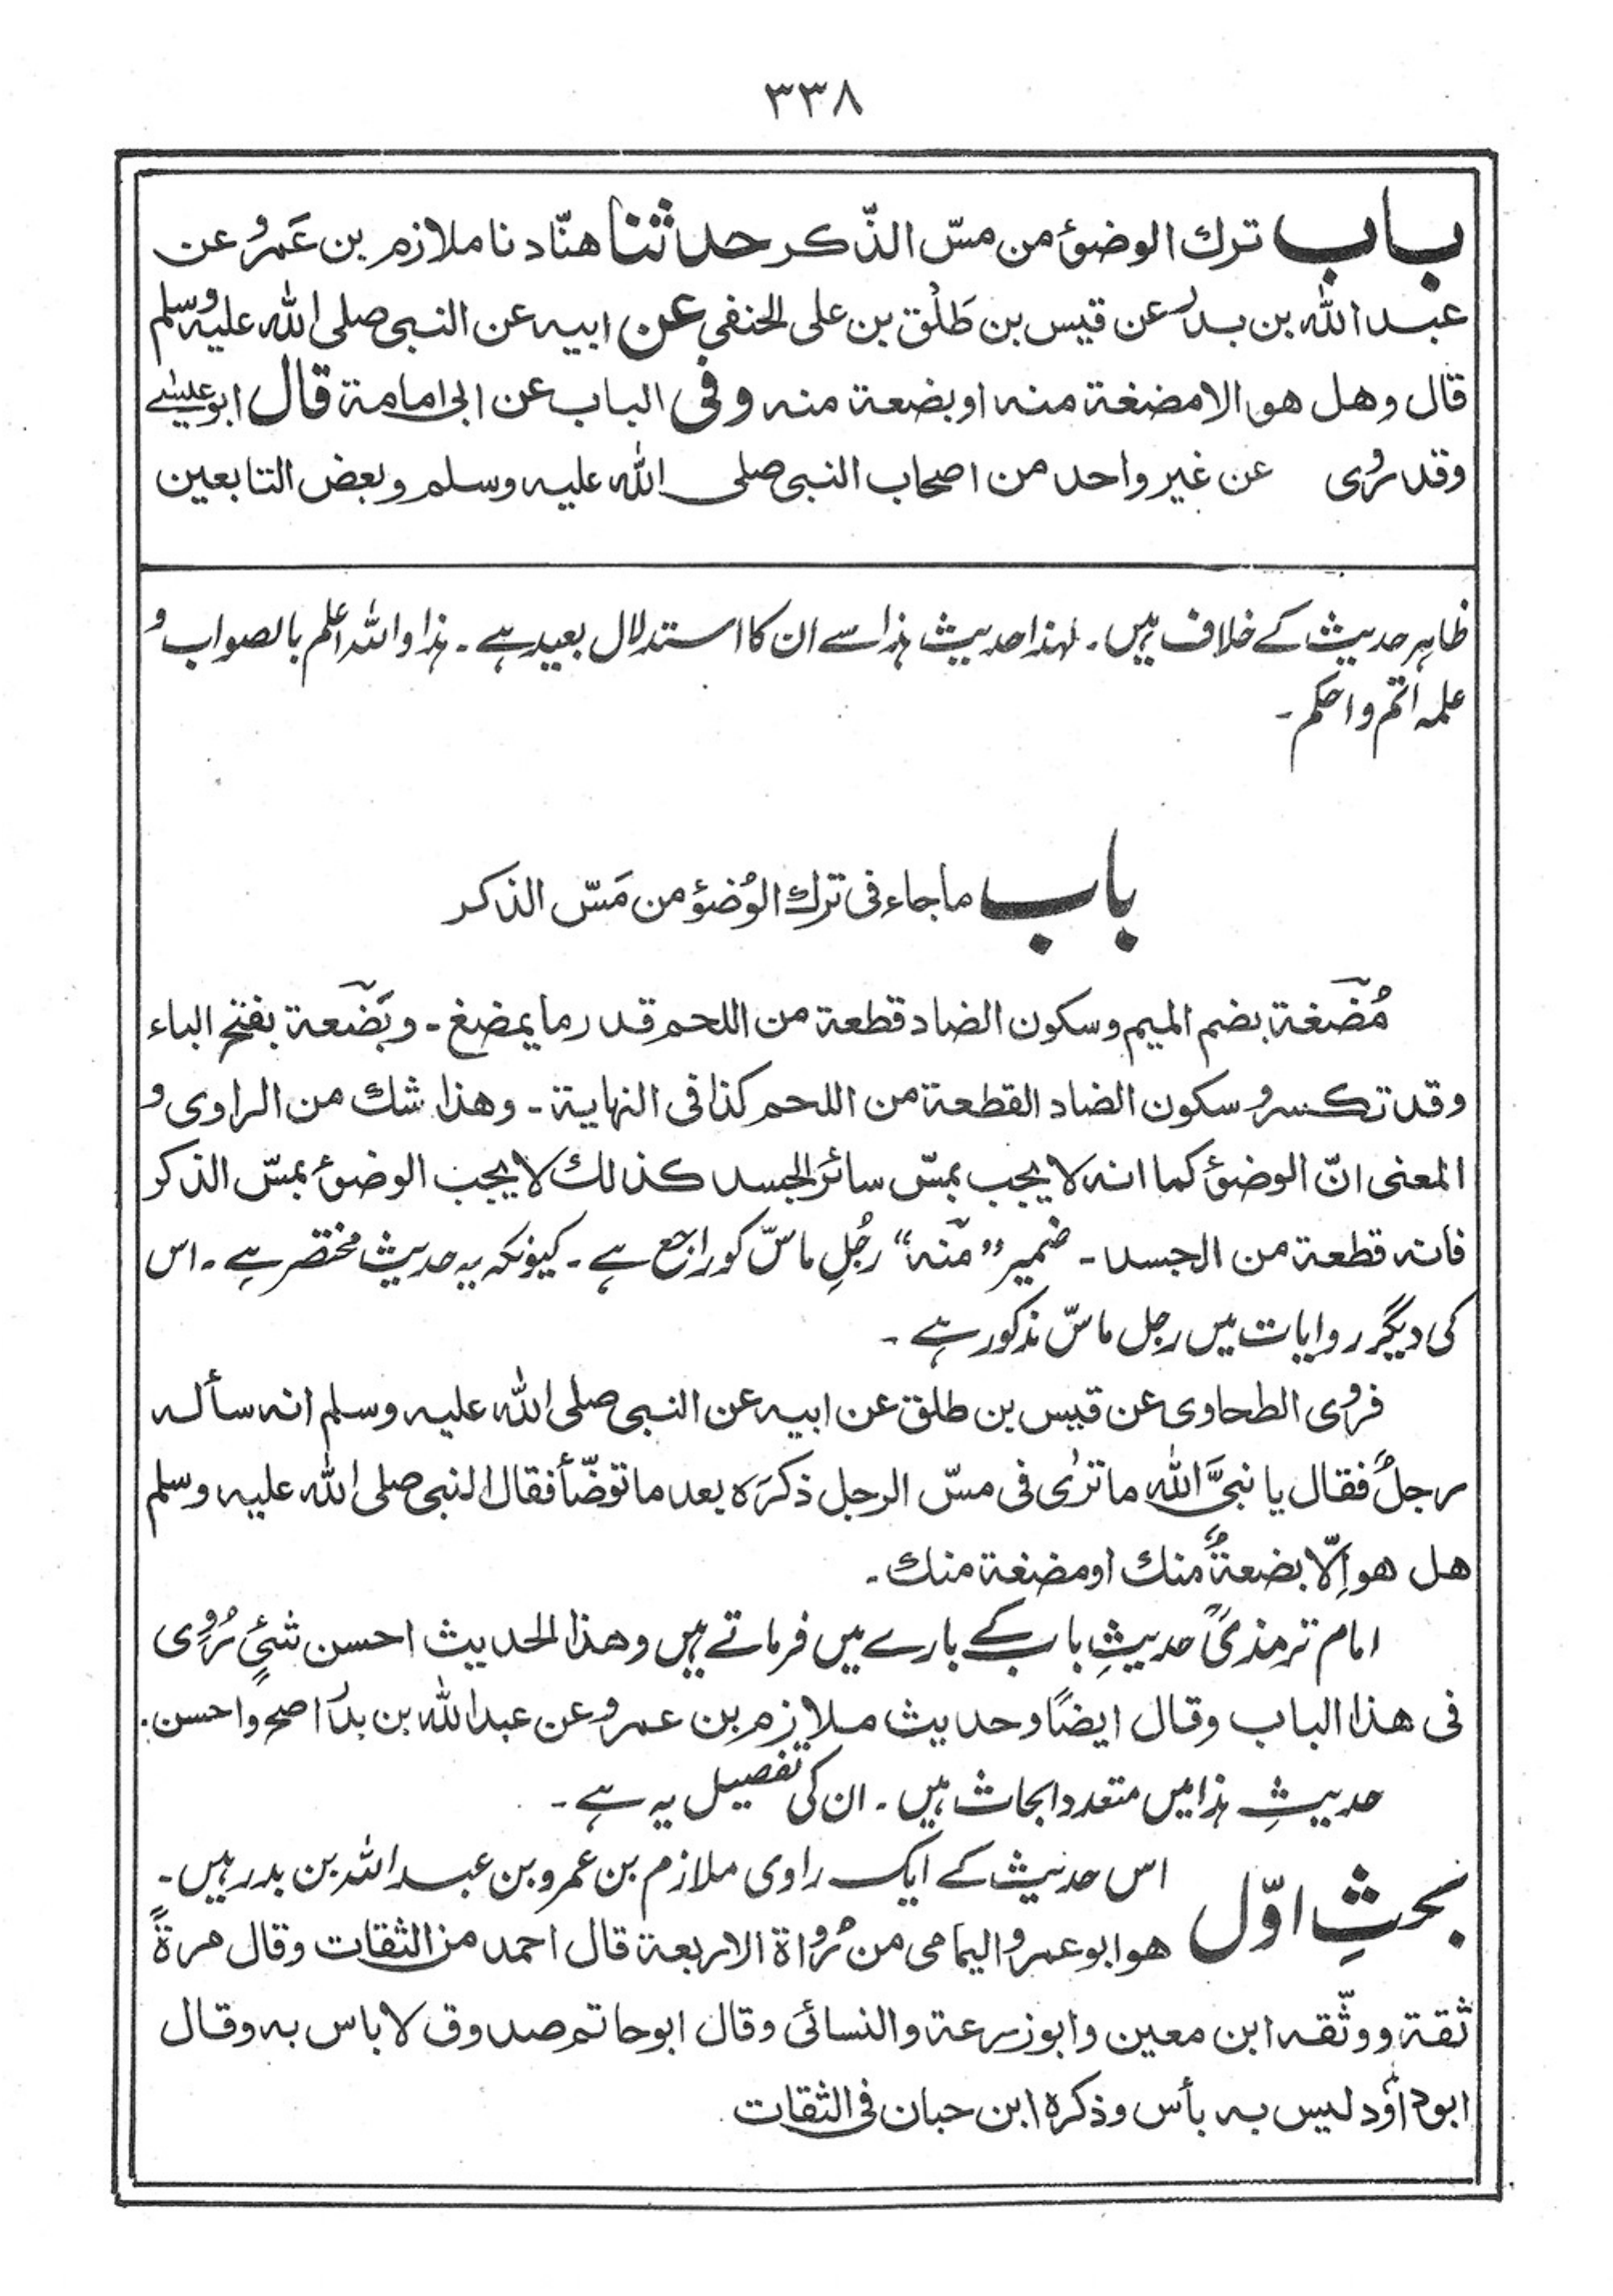 ۳۳۸
باب ترك الوضوئ من مسّ الذّكر حدثنا هنّاد نا ملازم بن عَمرو عن
عبد الله بن بدر عن قيس بن طَلْق بن على الحنفى عن ابيه عن النبى صلى الله عليه وسلم
قال وهل هو الا مضغة منه او بضعة منه وفى الباب عن ابى امامة قال ابو عيسٰے
وقد رُوى عن غير واحد من اصحاب النبى صلى الله عليه وسلم وبعض التابعين
ظاہر حدیث کے خلاف ہیں۔ لہذا حدیث ہذا سے ان کا استدلال بعید ہے۔ ہذا واللہ اعلم بالصواب و
علمہ اتم و احکم۔
باب ما جاء فى ترك الوُضوؤ من مَسّ الذكر
مُضْغة بضم الميم وسكون الضاد قطعة من اللحم قدر ما يمضغ۔ وبَضْعة بفتح الباء
وقد تكسر و سكون الضاد القطعة من اللحم كذا فى النهاية۔ وهذا شك من الراوى و
المعنى انّ الوضوئ كما انه لا يجب بمسّ سائر الجسد كذلك لا يجب الوضوئ بمسّ الذكر
فانه قطعة من الجسد۔ ضمیر ”منہ“ رجُلِ ماسّ کو راجع ہے۔ کیونکہ یہ حدیث مختصر ہے۔ اس
کی دیگر روایات میں رجل ماسّ مذکور ہے۔
فروى الطحاوى عن قيس بن طلق عن ابيه عن النبى صلى الله عليه وسلم انه سأله
رجلٌ فقال يا نبىَّ الله ما ترٰى فى مسّ الرجل ذكرَه بعد ما توضّأ فقال النبى صلى الله عليه وسلم
هل هو اِلّا بضعةٌ منك او مضغة منك۔
امام ترمذیؒ حدیثِ باب کے بارے میں فرماتے ہیں وهذا الحديث احسن شئىٍ رُوى
فى هذا الباب وقال ايضًا وحديث ملازم بن عمرو عن عبد الله بن بدر اصح واحسن.
حدیثِ ہذا میں متعدد ابحاث ہیں۔ ان کی تفصیل یہ ہے۔
بحثِ اوّل اس حدیث کے ایک راوی ملازم بن عمرو بن عبد اللہ بن بدر ہیں۔
هو ابو عمرو اليمامى من رُواة الاربعة قال احمد من الثقات وقال مرةً
ثقة ووثّقه ابن معين وابو زرعة والنسائىَ وقال ابو حاتم صدوق لا باس به وقال
ابو داؤد ليس به بأس وذكره ابن حبان فى الثقات